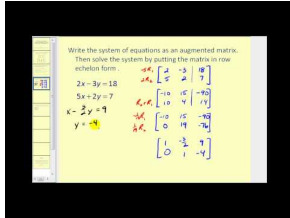 Write the system of equations as an augmented matrix.
Then solve the system by putting the matrix in row
echelon form.
2x − 3y = 18
5x + 2y = 7
x − 3/2 y = 9
y = −4
−5R₁ [ 2 −3 | 18 ]
2R₂ [ 5 2 | 7 ]
[ −10 15 | −90 ]
R₁+R₂ [ 10 4 | 14 ]
[ −10 15 | −90 ]
[ 0 19 | −76 ]
[ 1 −3/2 9 ]
[ 0 1 −4 ]